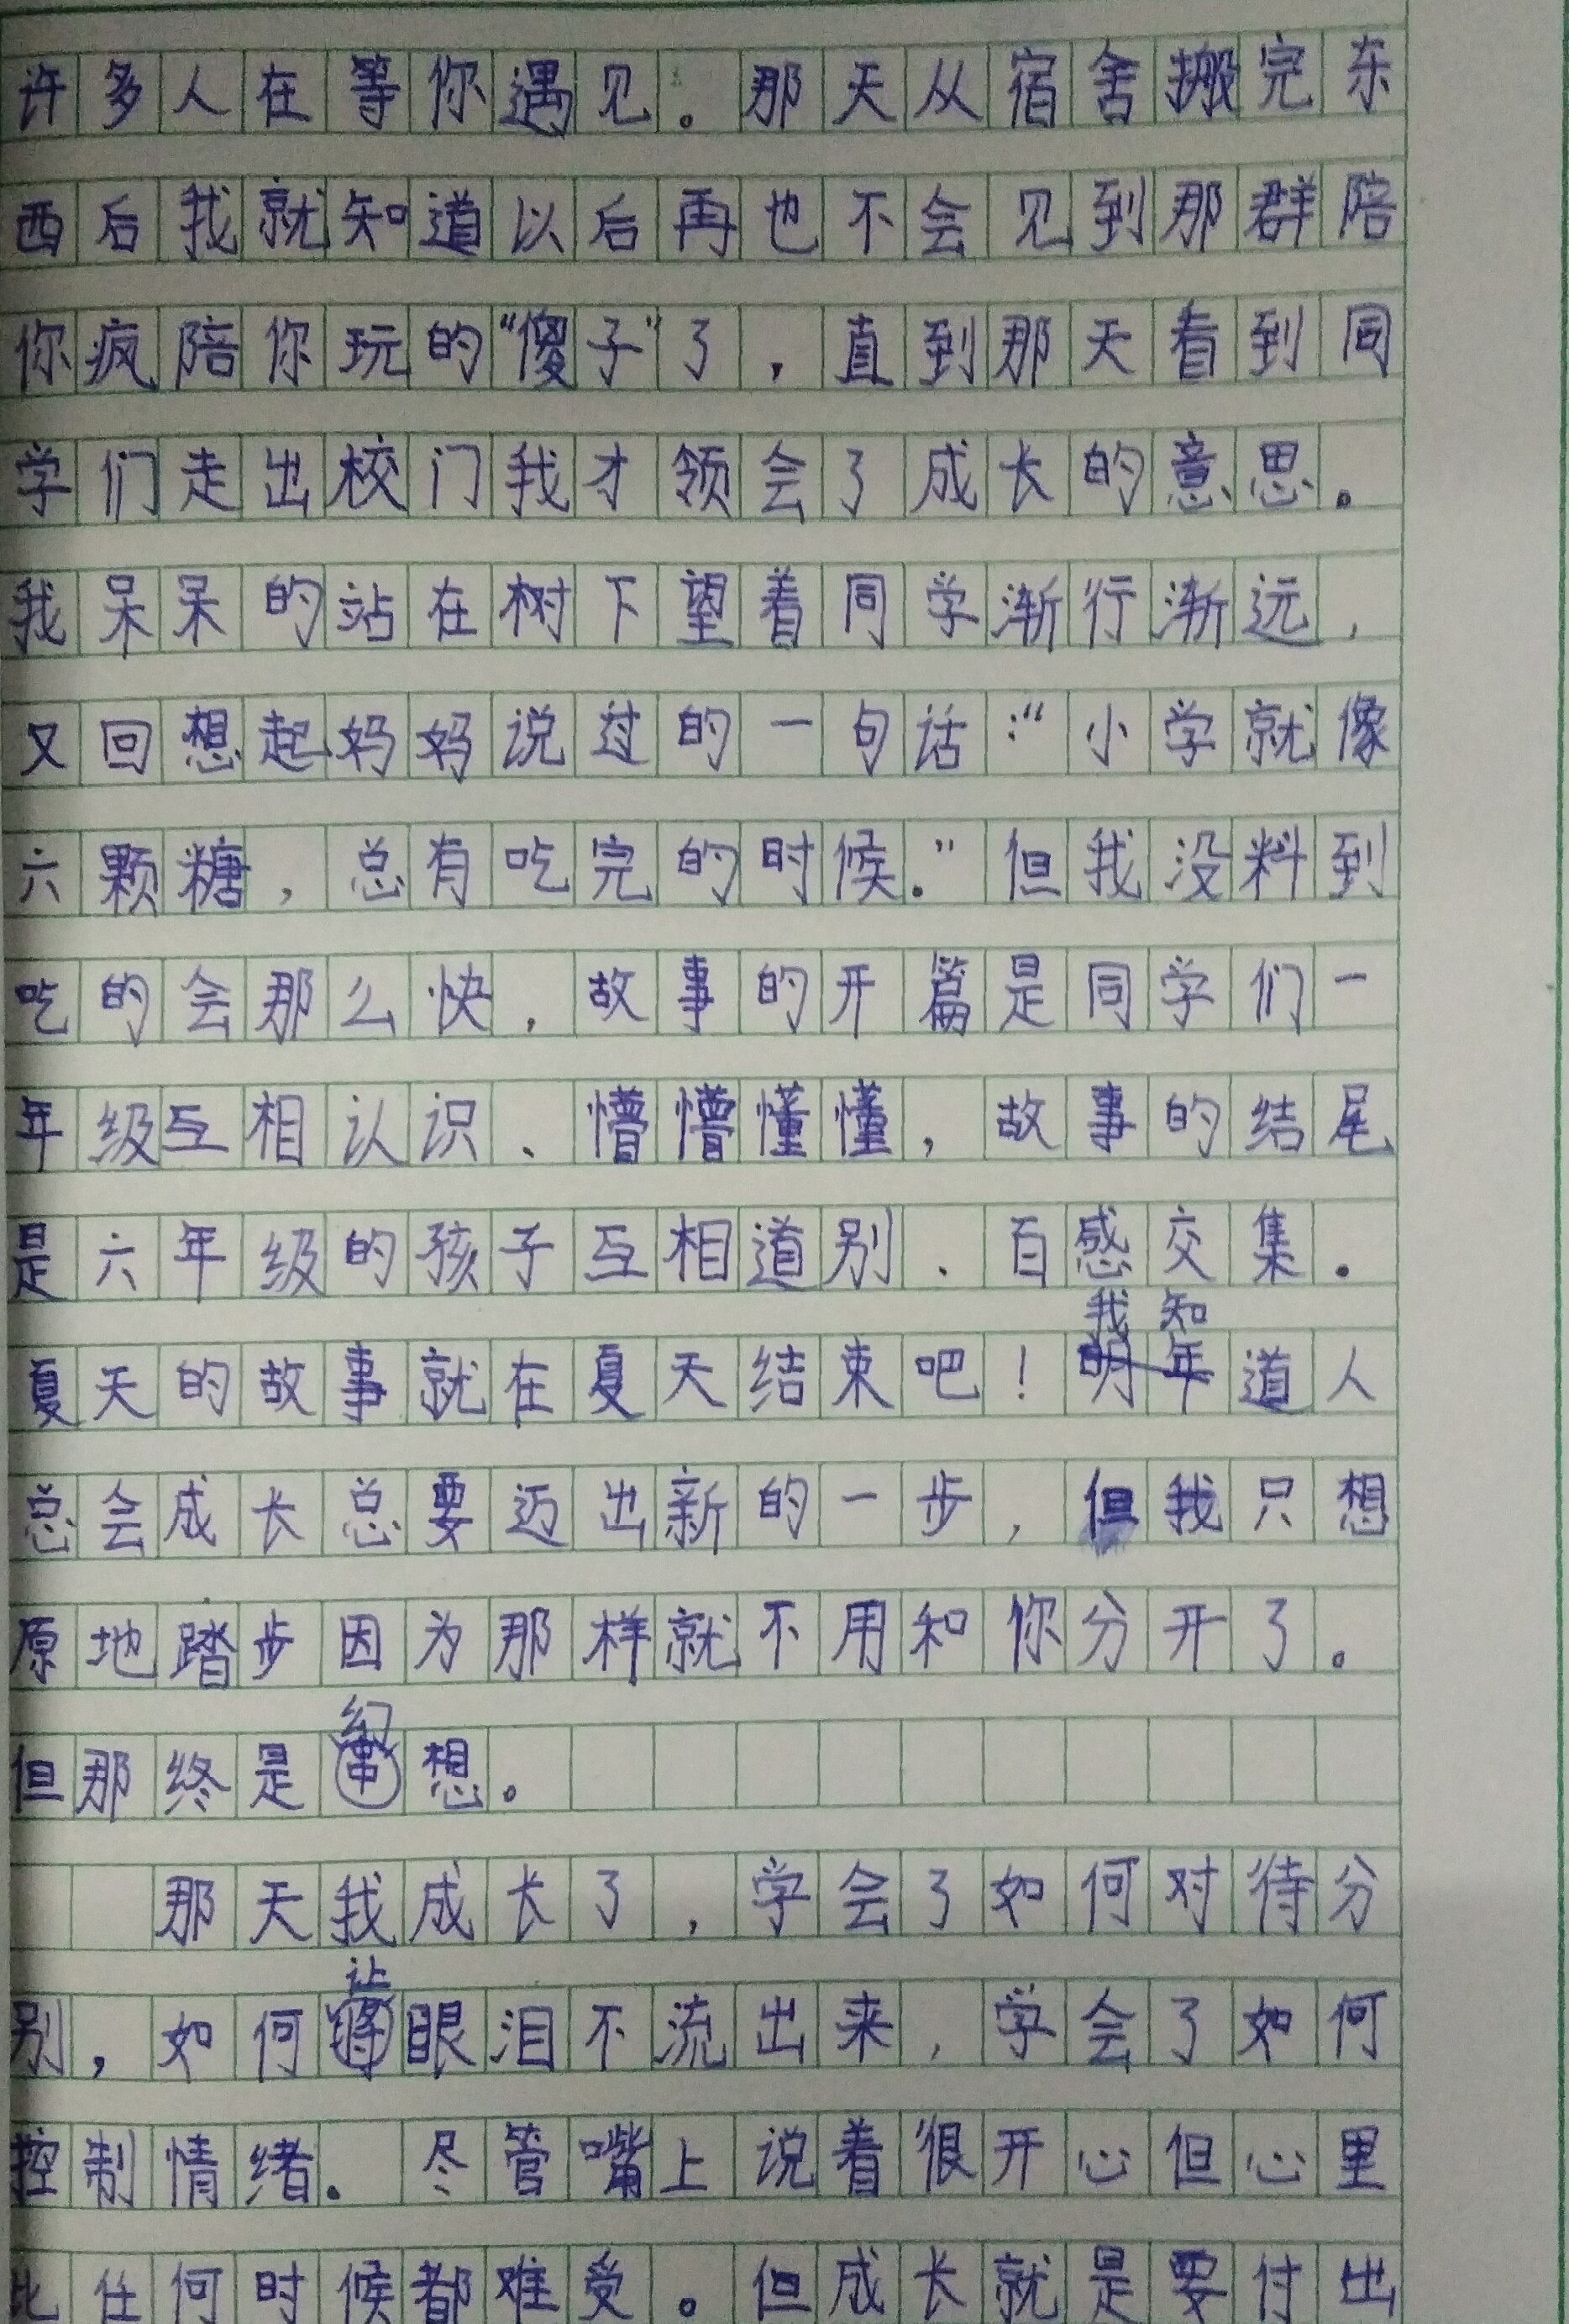 许多人在等你遇见。那天从宿舍搬完东
西后我就知道以后再也不会见到那群陪
你疯陪你玩的“傻子”了，直到那天看到同
学们走出校门我才领会了成长的意思。
我呆呆的站在树下望着同学渐行渐远，
又回想起妈妈说过的一句话：“小学就像
六颗糖，总有吃完的时候。”但我没料到
吃的会那么快，故事的开篇是同学们一
年级互相认识、懵懵懂懂，故事的结尾
是六年级的孩子互相道别、百感交集。
夏天的故事就在夏天结束吧！我知道人
总会成长总要迈出新的一步，但我只想
原地踏步因为那样就不用和你分开了。
但那终是幻想。
那天我成长了，学会了如何对待分
别，如何让眼泪不流出来，学会了如何
控制情绪。尽管嘴上说着很开心但心里
比任何时候都难受。但成长就是要付出